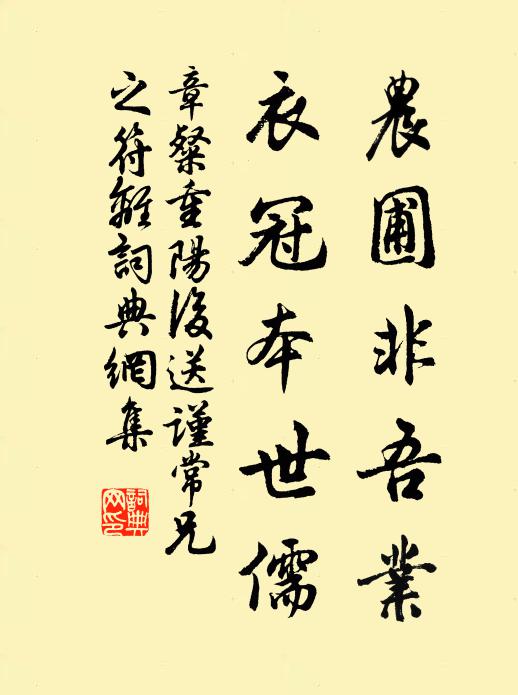 農圃非吾業
衣冠本世儒
章粲重陽後送謹常兄
之符離詞典網集
詞典
网印